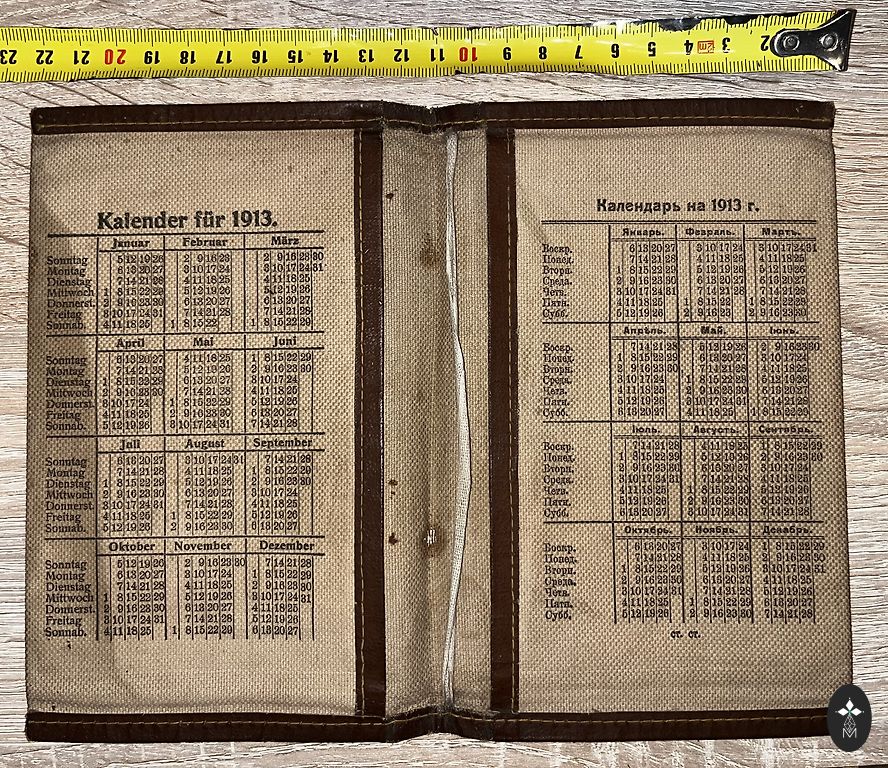 23 22 21 20 19 18 17 16 15 14 13 12 11 10 9 8 7 6 5 4 3 2
Kalender für 1913.
Januar Februar März
Sonntag 5 12 19 26 2 9 16 23 2 9 16 23 30
Montag 6 13 20 27 3 10 17 24 3 10 17 24 31
Dienstag 7 14 21 28 4 11 18 25 4 11 18 25
Mittwoch 1 8 15 22 29 5 12 19 26 5 12 19 26
Donnerst. 2 9 16 23 30 6 13 20 27 6 13 20 27
Freitag 3 10 17 24 31 7 14 21 28 7 14 21 28
Sonnab. 4 11 18 25 1 8 15 22 1 8 15 22 29
April Mai Juni
Sonntag 6 13 20 27 4 11 18 25 1 8 15 22 29
Montag 7 14 21 28 5 12 19 26 2 9 16 23 30
Dienstag 1 8 15 22 29 6 13 20 27 3 10 17 24
Mittwoch 2 9 16 23 30 7 14 21 28 4 11 18 25
Donnerst. 3 10 17 24 1 8 15 22 29 5 12 19 26
Freitag 4 11 18 25 2 9 16 23 30 6 13 20 27
Sonnab. 5 12 19 26 3 10 17 24 31 7 14 21 28
Juli August September
Sonntag 6 13 20 27 3 10 17 24 31 7 14 21 28
Montag 7 14 21 28 4 11 18 25 1 8 15 22 29
Dienstag 1 8 15 22 29 5 12 19 26 2 9 16 23 30
Mittwoch 2 9 16 23 30 6 13 20 27 3 10 17 24
Donnerst. 3 10 17 24 31 7 14 21 28 4 11 18 25
Freitag 4 11 18 25 1 8 15 22 29 5 12 19 26
Sonnab. 5 12 19 26 2 9 16 23 30 6 13 20 27
Oktober November Dezember
Sonntag 5 12 19 26 2 9 16 23 30 7 14 21 28
Montag 6 13 20 27 3 10 17 24 1 8 15 22 29
Dienstag 7 14 21 28 4 11 18 25 2 9 16 23 30
Mittwoch 1 8 15 22 29 5 12 19 26 3 10 17 24 31
Donnerst. 2 9 16 23 30 6 13 20 27 4 11 18 25
Freitag 3 10 17 24 31 7 14 21 28 5 12 19 26
Sonnab. 4 11 18 25 1 8 15 22 29 6 13 20 27
Календарь на 1913 г.
Январь. Февраль. Мартъ.
Воскр. 6 13 20 27 3 10 17 24 3 10 17 24 31
Понед. 7 14 21 28 4 11 18 25 4 11 18 25
Вторн. 1 8 15 22 29 5 12 19 26 5 12 19 26
Среда. 2 9 16 23 30 6 13 20 27 6 13 20 27
Четв. 3 10 17 24 31 7 14 21 28 7 14 21 28
Пятн. 4 11 18 25 1 8 15 22 1 8 15 22 29
Субб. 5 12 19 26 2 9 16 23 2 9 16 23 30
Апрѣль. Май. Іюнь.
Воскр. 7 14 21 28 5 12 19 26 2 9 16 23 30
Понед. 1 8 15 22 29 6 13 20 27 3 10 17 24
Вторн. 2 9 16 23 30 7 14 21 28 4 11 18 25
Среда. 3 10 17 24 1 8 15 22 29 5 12 19 26
Четв. 4 11 18 25 2 9 16 23 30 6 13 20 27
Пятн. 5 12 19 26 3 10 17 24 31 7 14 21 28
Субб. 6 13 20 27 4 11 18 25 1 8 15 22 29
Іюль. Августъ. Сентябрь.
Воскр. 7 14 21 28 4 11 18 25 1 8 15 22 29
Понед. 1 8 15 22 29 5 12 19 26 2 9 16 23 30
Вторн. 2 9 16 23 30 6 13 20 27 3 10 17 24
Среда. 3 10 17 24 31 7 14 21 28 4 11 18 25
Четв. 4 11 18 25 1 8 15 22 29 5 12 19 26
Пятн. 5 12 19 26 2 9 16 23 30 6 13 20 27
Субб. 6 13 20 27 3 10 17 24 31 7 14 21 28
Октябрь. Ноябрь. Декабрь.
Воскр. 6 13 20 27 3 10 17 24 1 8 15 22 29
Понед. 7 14 21 28 4 11 18 25 2 9 16 23 30
Вторн. 1 8 15 22 29 5 12 19 26 3 10 17 24 31
Среда. 2 9 16 23 30 6 13 20 27 4 11 18 25
Четв. 3 10 17 24 31 7 14 21 28 5 12 19 26
Пятн. 4 11 18 25 1 8 15 22 29 6 13 20 27
Субб. 5 12 19 26 2 9 16 23 30 7 14 21 28
ст. ст.
M